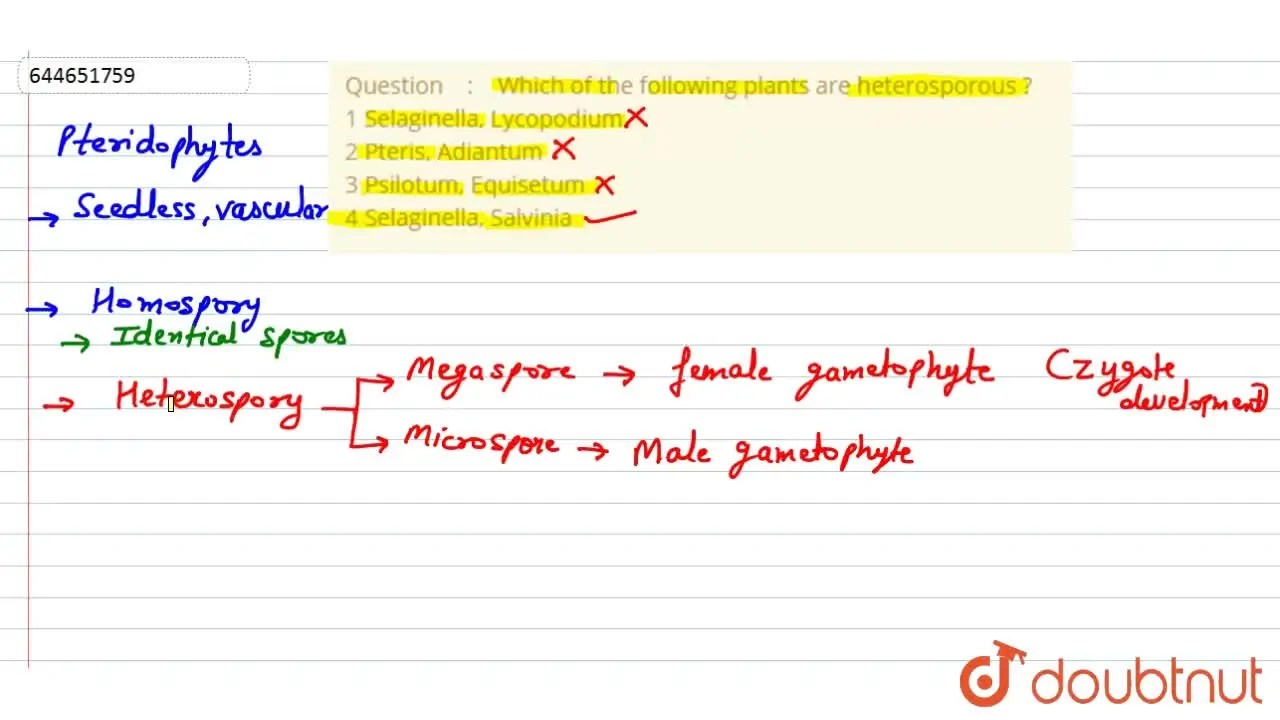 644651759
Question : Which of the following plants are heterosporous ?
1 Selaginella, Lycopodium X
2 Pteris, Adiantum X
3 Psilotum, Equisetum X
4 Selaginella, Salvinia
Pteridophytes
→ Seedless, vascular
→ Homospory
→ Identical spores
→ Heterospory
→ Megaspore → female gametophyte (zygote
development)
→ Microspore → Male gametophyte
doubtnut